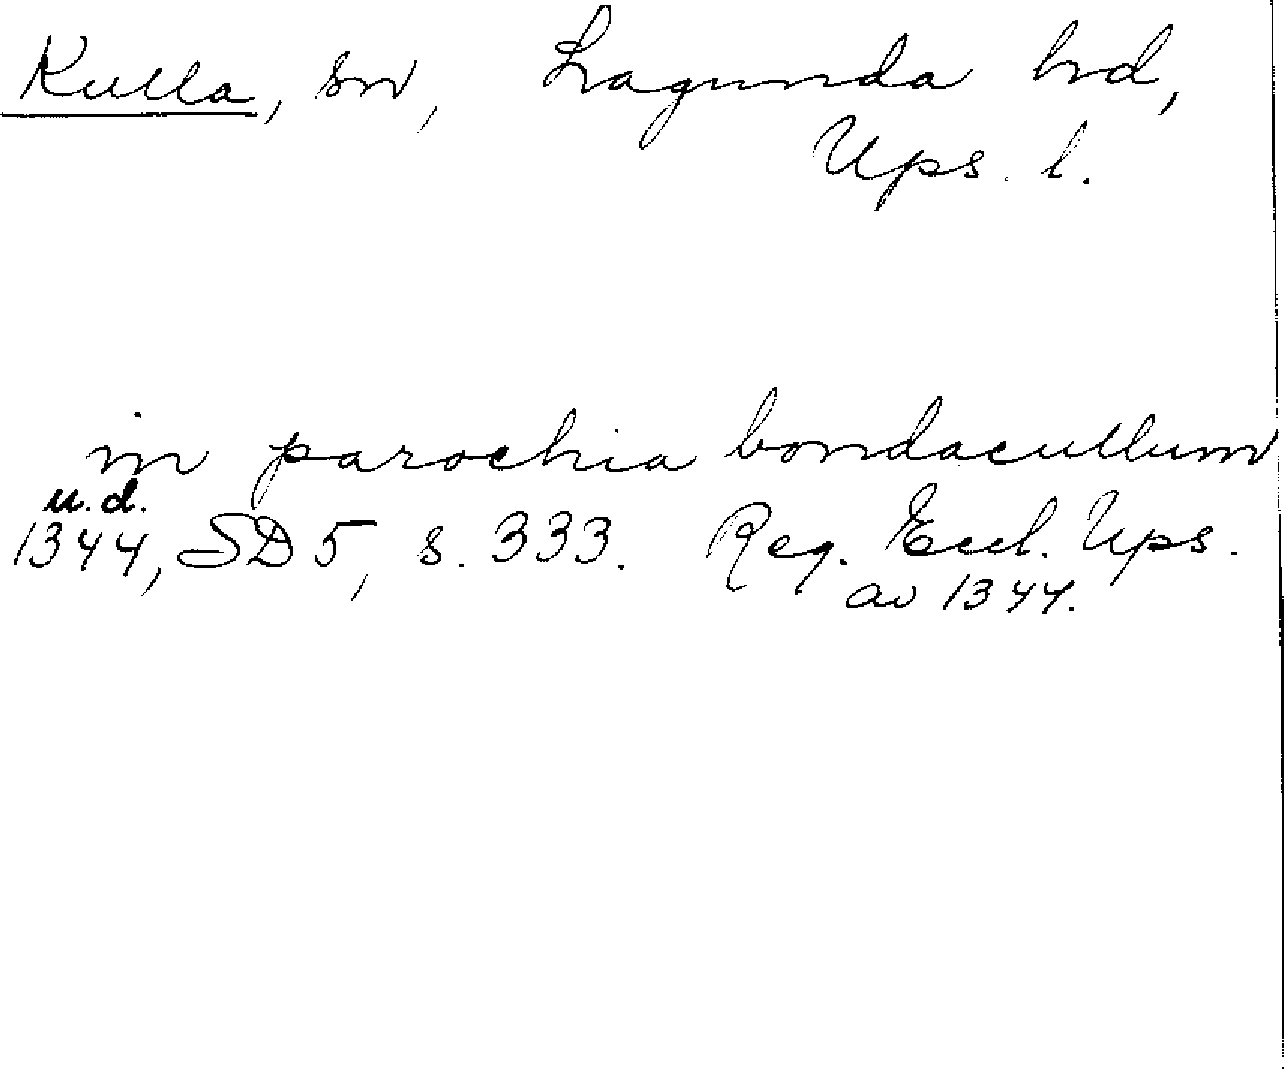 Kulla, sn, Lagunda hd,
Ups. l.
in parochia bondacullum
u.d.
1344, SD 5, s. 333. Reg. Eccl. Ups.
av 1344.